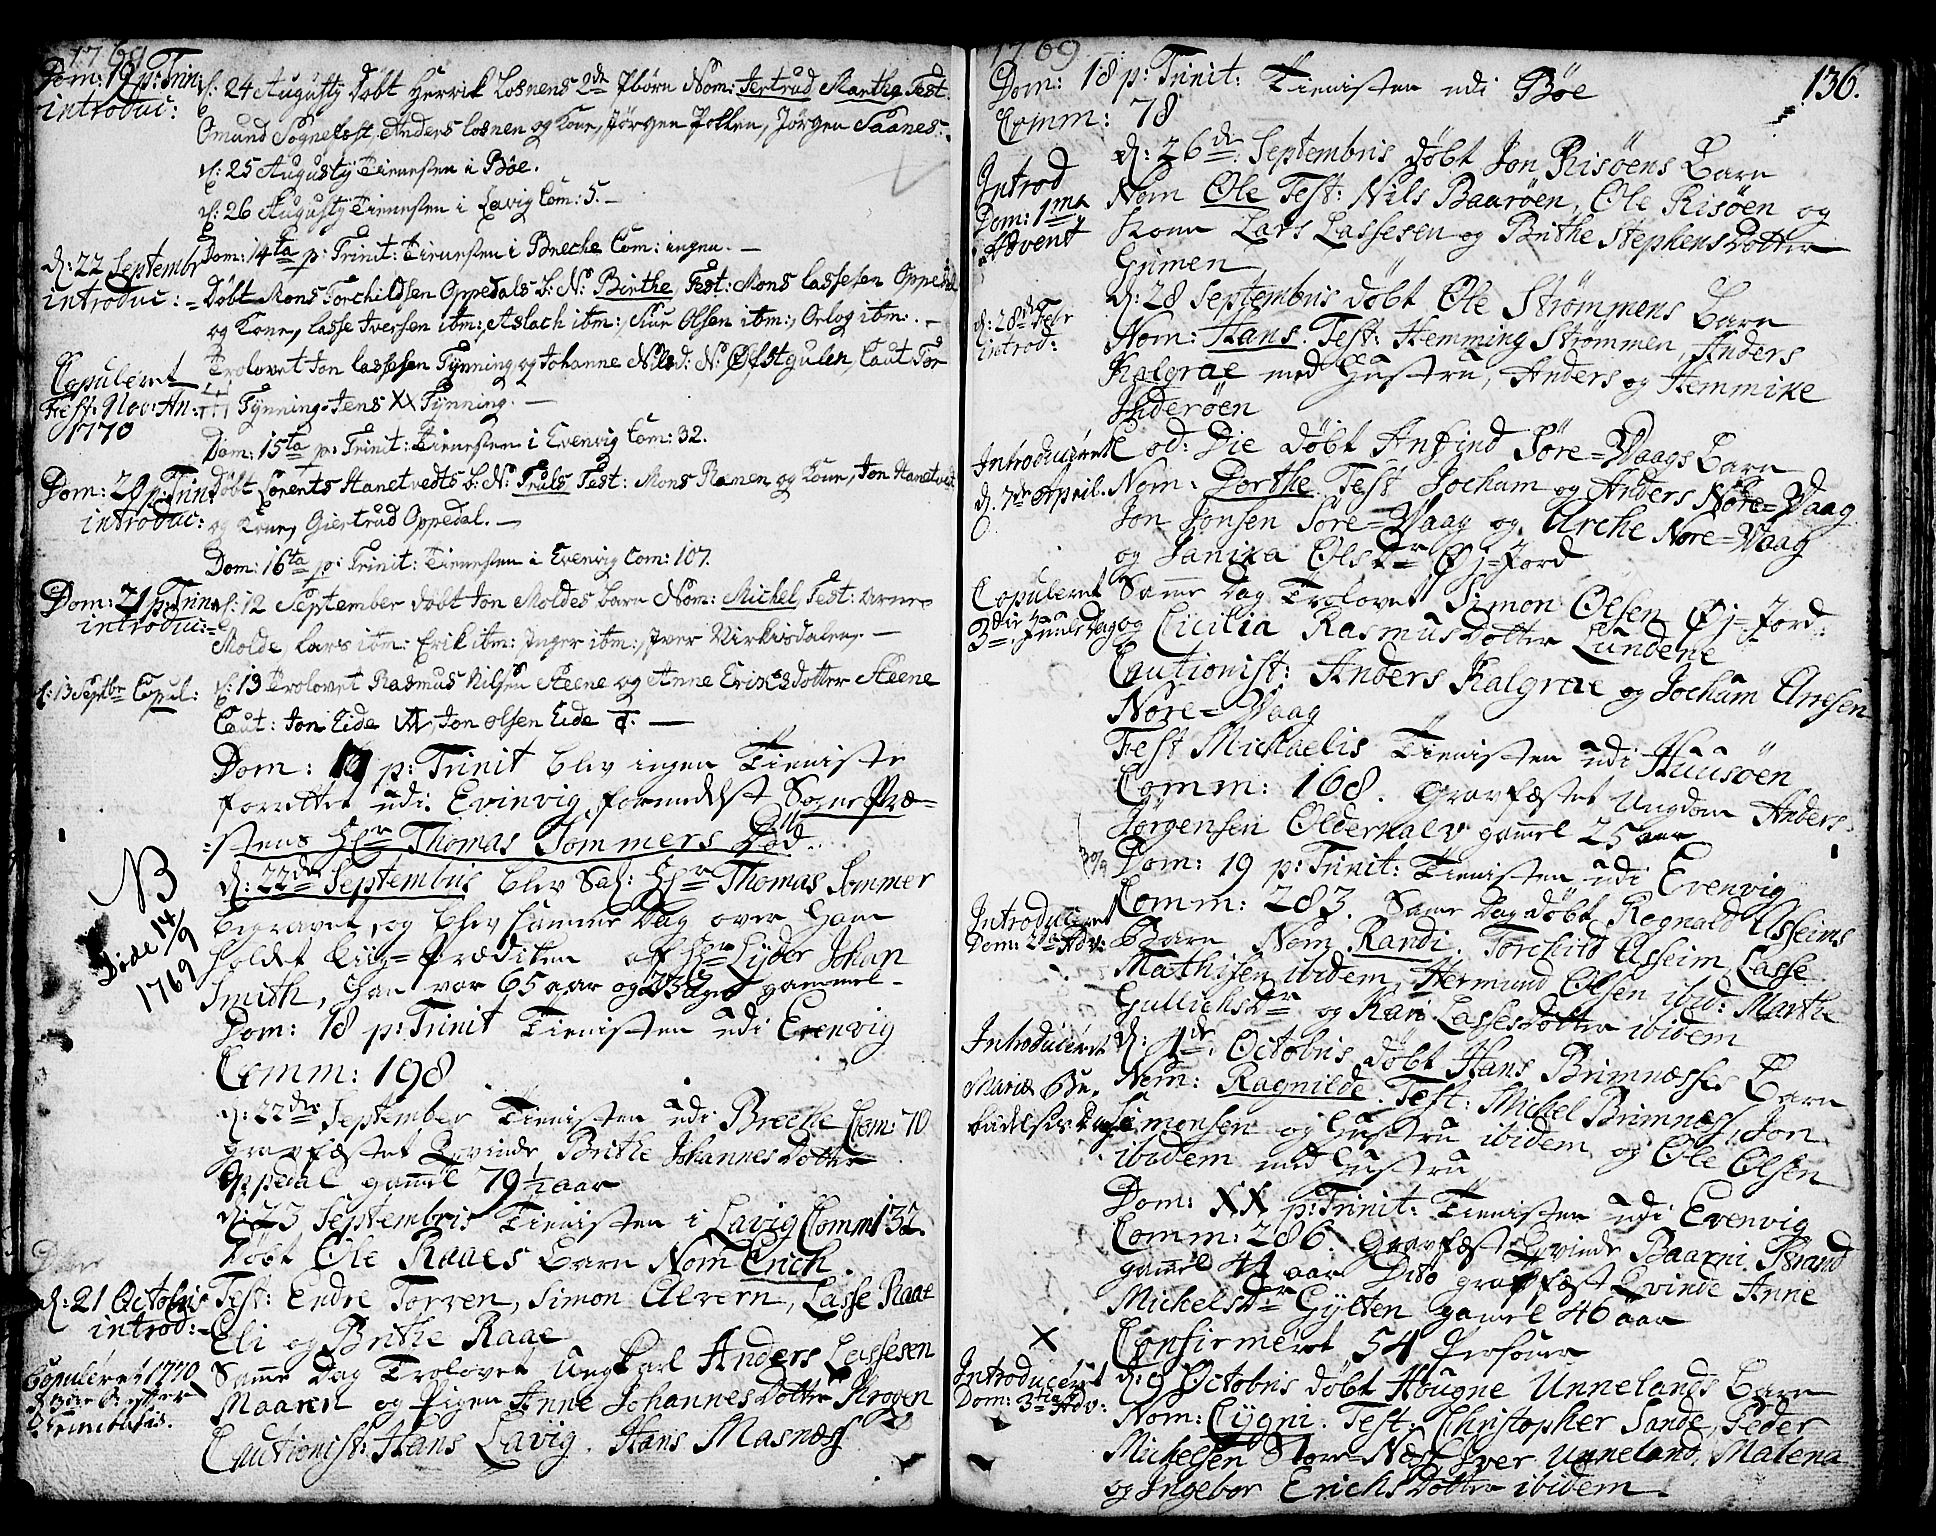 1769
Dom: 19 p: Trin:
introduc:
d: 24 Augusty Døbt Herrik Losnens 2de Pbørn Nom: Jertrud Marthe Test
Omund Sognefest, Anders Losnen og Kone, Jørgen Pollen, Jørgen Saanes.
d: 25 Augusty Tienesten i Bøe.
d: 26 Augusty Tienesten i Lavig Com: 5. –
Dom: 14ta p: Trinit: Tienesten i Breche Com: ingen. –
d: 22 Septembr
introduc: =
Døbt Mons Torchildsen Oppedals b: N: Birthe Test: Mons Lassesen Oppedal
og Kone, Lasse Iversen ibm:, Aslach ibm:, Olsen ibm:, ibm: . –
Copuleret
1770
Trolovet Jon Lassesen Tynning og Johanne Nilsd: N: Øfstgulen, Caut Tor
Tynning Jens XX Tynning. –
Dom: 15ta p: Trinit: Tienesten i Evenvig Com: 32.
Dom: 20 p: Trin:
introduc:
Døbt Lorents Hanetvedts b: N: Truls Test: Mons Ramen og Kone, Jon Hanetvedt
og Kone, Giertrud Oppedal. –
Dom: 16ta p: Trinit: Tienesten i Evenvig Com: 107.
Dom: 21 p: Trin
introduc: =
d: 12 September døbt Jon Moldes barn Nom: Michel Test: Arne
Molde Lars ibm: Erik ibm: Inger ibm:, Iver Virkisdalen, –
d: 13 Septbr Copul:
d: 13 Trolovet Rasmus Nilsen Steene og Anne Eriksdotter Steene
Caut: Jon Eide Jon Olsen Eide –
Dom: 17 p: Trinit blev ingen Tieniste
forrettet udi Evinvig formedelst Sogne Præ=
=stens Hr Thomas Sommers Død.
NB
Døde 14/9
1769
d: 22de Septembris blev Sal: Hr Thomas Sommer
begravet, og blev samme Dag over ham
holdet Liig=Prædiken af Hr Lyder Johan
Smith, han var 65 aar og gammel –
Dom: 18 p: Trinit Tienisten udi Evenvig
Comm: 198
d: 22de September Tienisten udi Breche Com: 70
gravfæstet Qvinde Brithe Johannes Dotter
Oppedal gamel 79 1/2 aar
d: 23 Septembris Tienisten i Lavig Comm 132
døbt Ole Raaes barn Nom Erich.
d: 21 Octobris
introd: –
Test: Endre Torven, Simon Alvern, Lasse Raae
Eli og Brithe Raae
Copuleret 1770

Trinitatis.
Samme Dag Trolovet Ungkarl Anders Lassesen
Maaren og Pigen Anne Johannes Dotter Krogen
Cautionist: Hans Lavig. Hans Masnæss
1769
136.
Dom: 18 p: Trinit: Tienisten udi Bøe
Comm: 78
Introd
Dom: 1ma
Advent
d: 26de Septembris døbt Jon Risøens Barn
Nom Ole Test: Nils Baarøen, Ole Risøen og
Kone Lars Lassesen og Brithe Stephens Dotter
Grimen
d: 28de Febr
introd:
d: 28 Septembris døbt Ole Strømmens Barn
Nom: Hans. Test: Hemming Strømmen, Anders
Kalgrae med Hustru, Anders og Hemmike
Inderøen
Introduceret
d. 7de April.
eod: Die døbt Anfind Søre=Waags Barn
Nom: Dorthe. Test Jocham og Anders Nore=Waag
Jon Jonsen Søre=Waag og Arche Nore=Waag
og Janika Ols Dr Øj=Jord
Copuleret
3die Juule Dag
Samme Dag Trolovet Simon Olsen Øj=Jord
og Cicilia Rasmus Dotter Lundene
Cautionist: Anders Kalgrae og Jocham Arnesen
Nore=Waag
Fest Michaelis Tienisten udi Huusøen
Comm: 168. Gravfæstet Ungdom Anders
Jørgensen Olderkalv gamel 25 aar
Dom: 19 p: Trinit: Tienisten udi Evenvig
Comm: 283. Samme Dag døbt Rognald Asseims
Introduceret
Dom: 2da Adv:
Barn Nom Randi. Torchild Asseim, Lasse
Mathisen ibidem, Hermund Olsen ibid: Marthe
Gullichs Dr og Kari Lasses Dotter ibidem
Introduceret
Mariæ Be=
budelses Dag
d: 4de Octobris døbt Hans Brimnesses Barn
Nom: Ragnilde. Test: Michel Brimness, Jon
Simonsen og Hustru ibidem og Ole Olsen
ibidem med Hustru
Dom: XX p: Trinit: Tienisten udi Evenvig
Comm: 286. Gravfæst Qvinde Baarni Strand
gamel 44 aar Dito gravfæst Qvinde Anne
Michels Dr Gylten gamel 46 aar
X
Confirmeret 54 Persone
Introduceret
Dom: 3tia Adv:
d: 9 Octobris døbt Hougne Unnelands Barn
Nom: Cygni. Test: Christopher Sande, Peder
Michelsen Store=Næss Iver Unneland, Malena
og Ingebor Erichs Dotter ibidem.